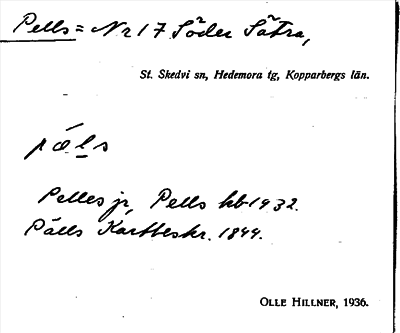 Pells = Nr 17 Söder Sätra,
St. Skedvi sn, Hedemora tg, Kopparbergs län.
pæ̀ls
Pelles jr, Pells hb 1932.
Pälls Kartbeskr. 1844.
OLLE HILLNER, 1936.